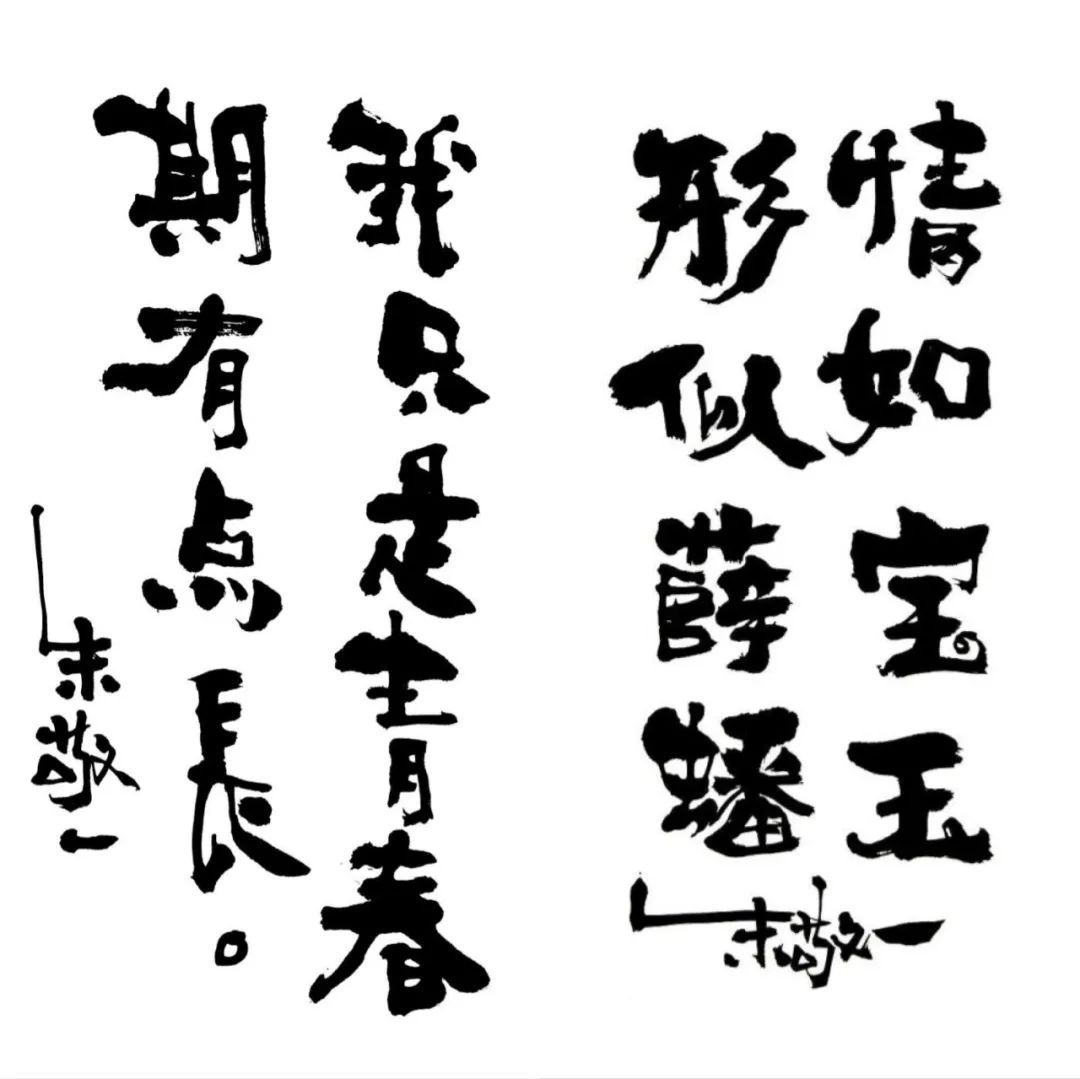 情如宝玉
形似薛蟠
朱敬一
我只是青春
期有点長。
朱敬一